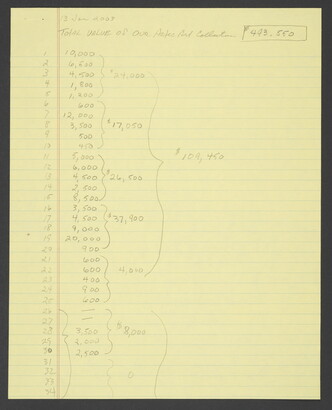 13 Jan 2009
Total Value of Our Art Collection $493,550
1 10,000
2 6,500
3 4,500 $24,000
4 1,800
5
6 600
7 12,000
8 3,500 $17,050
9 500
10 450
11 5,000
12 6,000
13 4,500 $26,500
14 2,500
15 8,500
$109,450
16 3,500
17 4,500 $37,900
18 9,000
19 20,000
20 900
21 600
22 600 4,010
23 400
24 900
25 600
26 —
27 —
28 3,500 $8,000
29 2,000
30 2,500
31
32
33
34